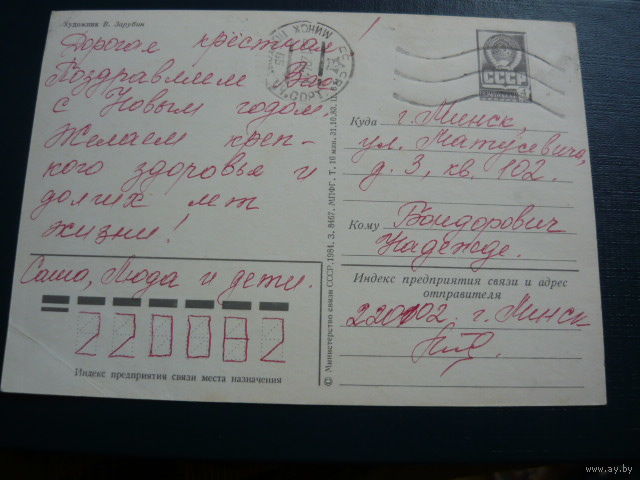 Художник В. Зарубин
Дорогая крёстная!
Поздравляем Вас
с Новым годом,
Желаем креп-
кого здоровья и
долгих лет
жизни!
Саша, Люда и дети.
220082
Индекс предприятия связи места назначения
© Министерство связи СССР, 1984. З. 8467. МПФГ. Т. 10 млн. 31.10.80. Ц.
МИНСК
СССР
Куда г. Минск,
ул. Матусевича,
д. 3, кв. 102.
Кому Бондорович
Надежде.
Индекс предприятия связи и адрес
отправителя
220102. г. Минск
www.ay.by